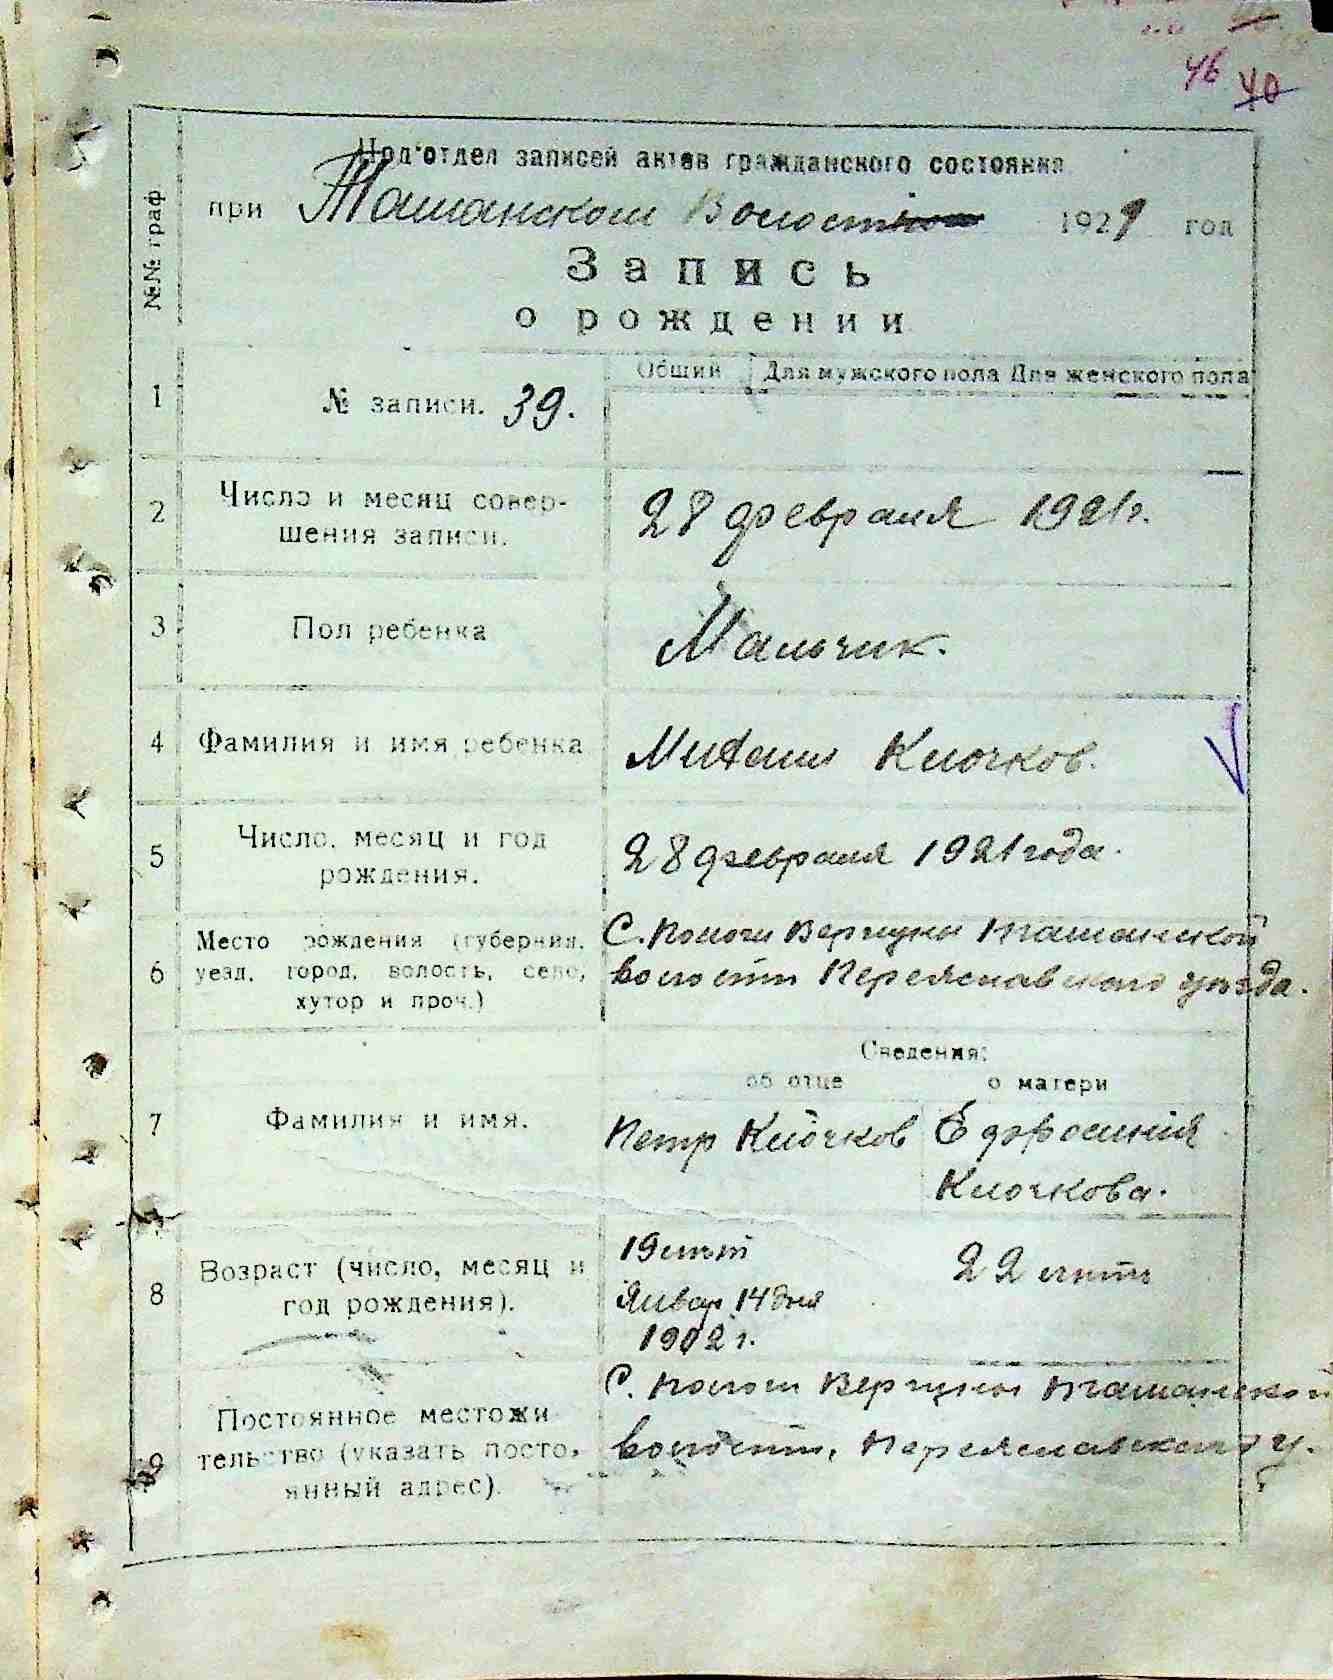 46 40
Подотдел записей актов гражданского состояния
при Ташанском Волост 1921 год
Запись
о рождении
№№ граф
Общий Для мужского пола Для женского пола
1 № записи. 39.
2 Число и месяц совер-
шения записи.
28 февраля 1921г.
3 Пол ребенка Мальчик.
4 Фамилия и имя ребенка Михаил Клочков.
5 Число, месяц и год
рождения.
28 февраля 1921 года.
6 Место рождения (губерния,
уезд, город, волость, село,
хутор и проч.)
С. Пологи Вергуны Ташанской
волости Переяславского уезда.
Сведения:
об отце о матери
7 Фамилия и имя. Петр Клочков Ефросиния
Клочкова.
8 Возраст (число, месяц и
год рождения).
19 лет 22 лет
Январ 14 дня
1902 г.
9 Постоянное местожи
тельство (указать посто,
янный адрес).
С. Пологи Вергуны Ташанской
волости, Переяславского у.